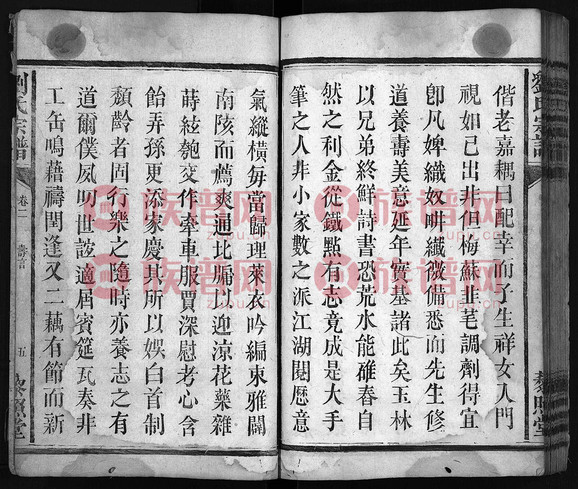 偕老嘉耦日配幸而子生祥女入門
視如已出非但梅蘇韭芼調劑得宜
卽凡婢織奴耕纖微備悉而先生修
道養壽美意延年質基諸此矣玉林
以兄弟終鮮詩書恐荒水能碓舂自
然之利金從鐵點有志竟成是大手
筆之人非小家數之派江湖閱歷意
氣縱橫每當歸理萊衣吟編東雅闢
南陔而薦爽通北牖以迎涼花藥雜
蒔絃匏交作牽車服賈深慰考心含
飴弄孫更添家慶其所以娛白首制
頹齡者固行樂之隨時亦養志之有
道爾僕夙叨世誼適屆賓筵瓦奏非
工缶鳴藉禱閏逢又二藕有節而新
劉氏宗譜
卷二
壽言
五
藜照堂
劉氏宗譜
藜照堂
族谱网
族谱网
族谱网
族谱网